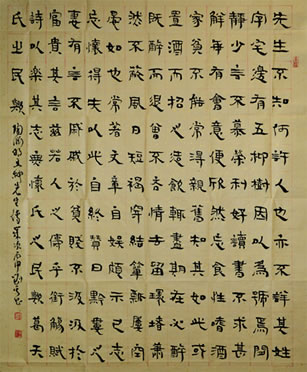 先生不知何許人也亦不詳其姓
字宅邊有五柳樹因以為號焉閑
靜少言不慕榮利好讀書不求甚
解每有會意便欣然忘食性嗜酒
家貧不能常得親舊知其如此或
置酒而招之造飲輒盡期在必醉
既醉而退曾不吝情去留環堵蕭
然不蔽風日短褐穿結簞瓢屢空
晏如也常著文章自娛頗示己志
忘懷得失以此自終贊曰黔婁之
妻有言不戚戚於貧賤不汲汲於
富貴其言茲若人之儔乎銜觴賦
詩以樂其志無懷氏之民歟葛天
氏之民歟 陶淵明五柳先生傳